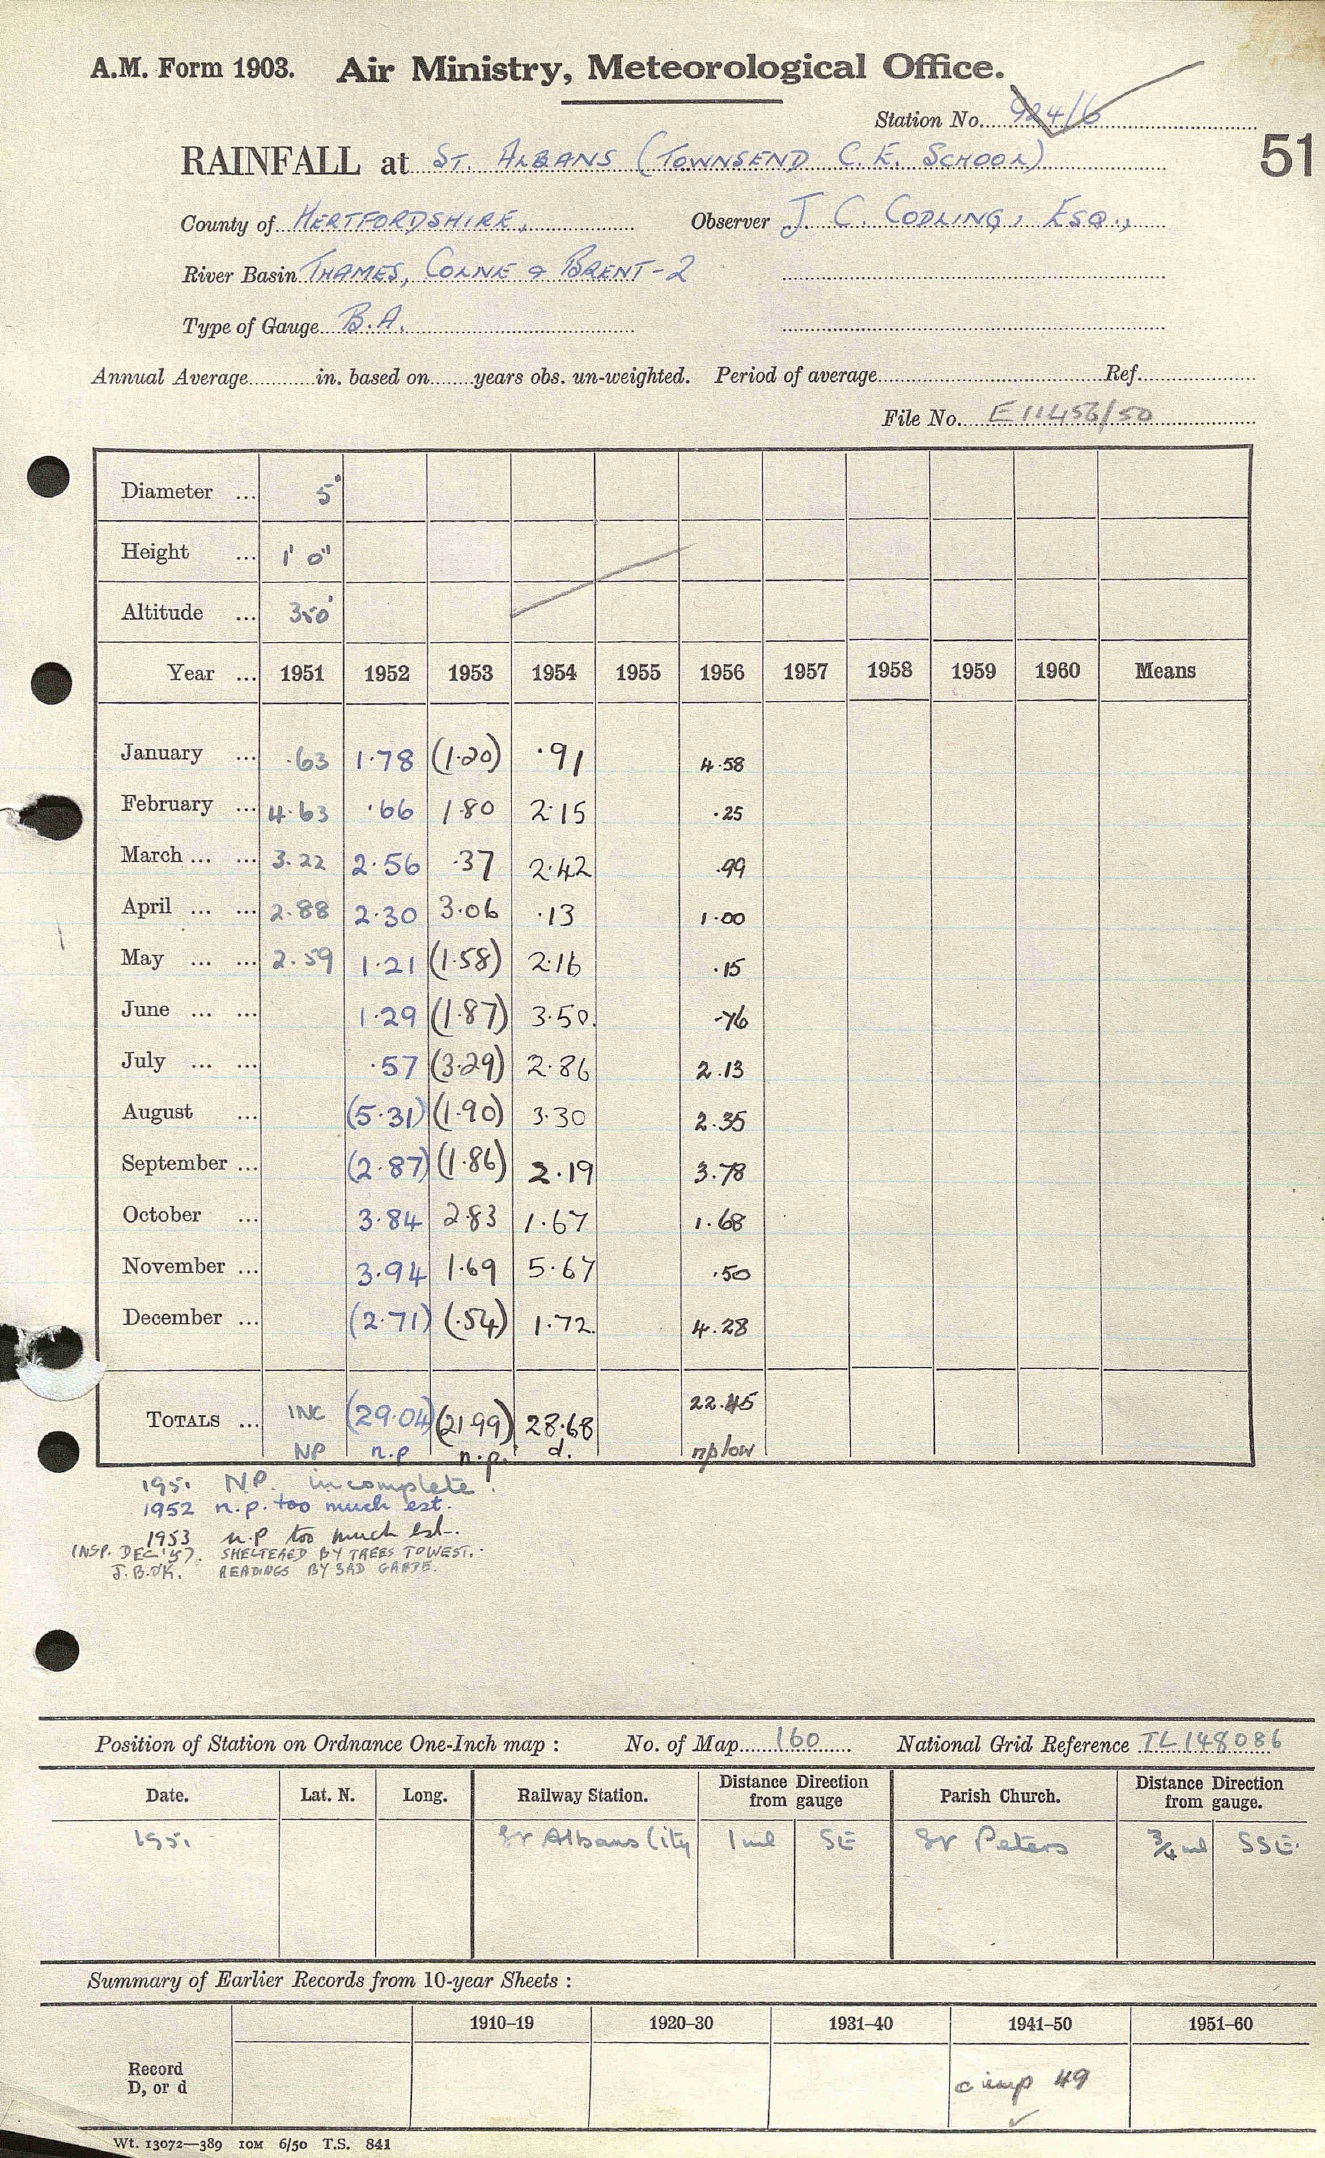 A.M. Form 1903. Air Ministry, Meteorological Office.
Station No. 924/6
51
RAINFALL at ST. ALBANS (TOWNSEND C. E. SCHOOL)
County of HERTFORDSHIRE, Observer J. C. CODLING, ESQ.,
River Basin THAMES, COLNE & BRENT-2
Type of Gauge B.A.
Annual Average in. based on years obs. un-weighted. Period of average Ref.
File No. E11456/50
Diameter ... 5"
Height ... 1' 0"
Altitude ... 350'
Year ... 1951 1952 1953 1954 1955 1956 1957 1958 1959 1960 Means
January ... .63 1.78 (1.20) .91 4.58
February ... 4.63 .66 1.80 2.15 .25
March ... ... 3.22 2.56 .37 2.42 .99
April ... ... 2.88 2.30 3.06 .13 1.00
May ... ... 2.59 1.21 (1.58) 2.16 .15
June ... ... 1.29 (1.87) 3.50 .76
July ... ... .57 (3.29) 2.86 2.13
August ... (5.31) (1.90) 3.30 2.35
September ... (2.87) (1.86) 2.19 3.78
October ... 3.84 2.83 1.67 1.68
November ... 3.94 1.69 5.67 .50
December ... (2.71) (.54) 1.72 4.28
TOTALS ... INC (29.04) (21.99) 28.68 22.45
NP n.p n.p. d. np low
1951 N.P. incomplete.
1952 n.p. too much est.
1953 n.p too much est.
INSP. DEC '57. SHELTERED BY TREES TO WEST.
J.B.P.K. READINGS BY 3RD GRADE.
Position of Station on Ordnance One-Inch map : No. of Map 160 National Grid Reference TL148086
Date. Lat. N. Long. Railway Station. Distance Direction from gauge Parish Church. Distance Direction from gauge.
1951 St Albans City 1 ml SE St Peters 3/4 ml SSE.
Summary of Earlier Records from 10-year Sheets :
1910–19 1920–30 1931–40 1941–50 1951–60
Record D, or d
49
Wt. 13072—389 10M 6/50 T.S. 841